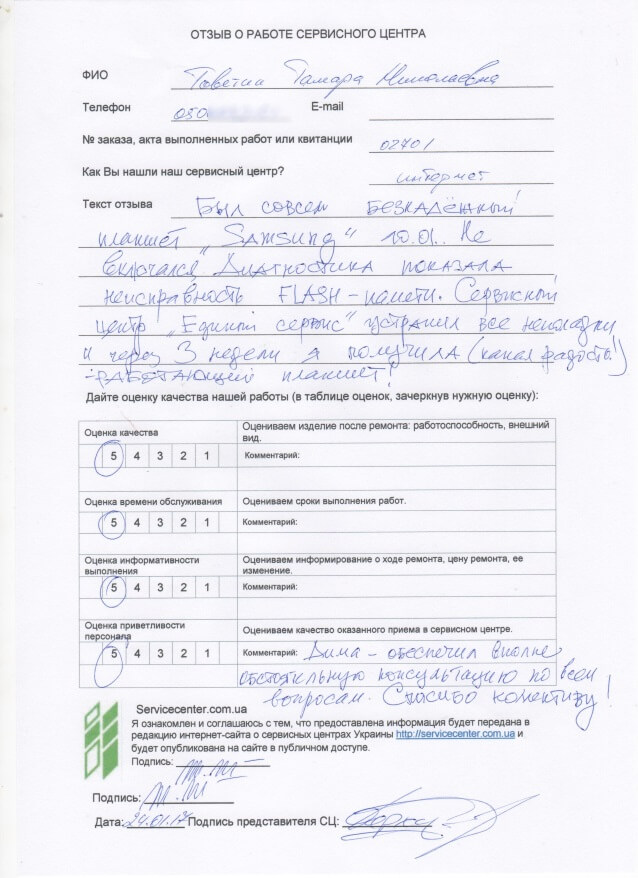 ОТЗЫВ О РАБОТЕ СЕРВИСНОГО ЦЕНТРА
ФИО Тамара Николаевна
Телефон 050 E-mail
№ заказа, акта выполненных работ или квитанции 02701
Как Вы нашли наш сервисный центр? интернет
Текст отзыва Был совсем безнадёжный
планшет "SAMSUNG" 10.01. Не
включался. Диагностика показала
неисправность FLASH-памяти. Сервисный
центр "Единый сервис" устранил все неполадки
и через 3 недели я получила (какая радость!)
РАБОТАЮЩИЙ планшет!
Дайте оценку качества нашей работы (в таблице оценок, зачеркнув нужную оценку):
Оценка качества Оцениваем изделие после ремонта: работоспособность, внешний
вид.
5 4 3 2 1 Комментарий:
Оценка времени обслуживания Оцениваем сроки выполнения работ.
5 4 3 2 1 Комментарий:
Оценка информативности Оцениваем информирование о ходе ремонта, цену ремонта, ее
выполнения изменение.
5 4 3 2 1 Комментарий:
Оценка приветливости Оцениваем качество оказанного приема в сервисном центре.
персонала
5 4 3 2 1 Комментарий: Дима - обеспечил вполне
обстоятельную консультацию по всем
вопросам. Спасибо коллективу!
Servicecenter.com.ua
Я ознакомлен и соглашаюсь с тем, что предоставлена информация будет передана в
редакцию интернет-сайта о сервисных центрах Украины http://servicecenter.com.ua и
будет опубликована на сайте в публичном доступе.
Подпись:
Подпись:
Дата: 24.01.17 Подпись представителя СЦ: